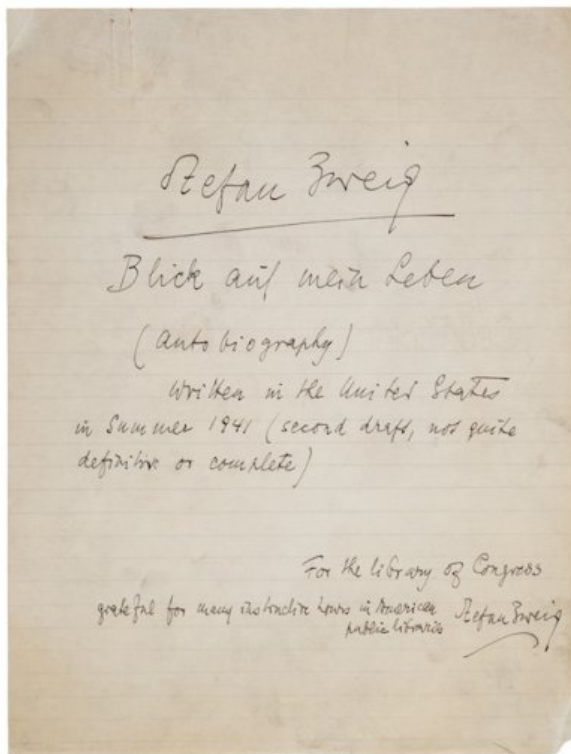 Stefan Zweig
Blick auf mein Leben
(autobiography)
Written in the United States
in Summer 1941 (second draft, not quite
definitive or complete)
For the library of Congress
grateful for many instructive hours in American
public libraries
Stefan Zweig